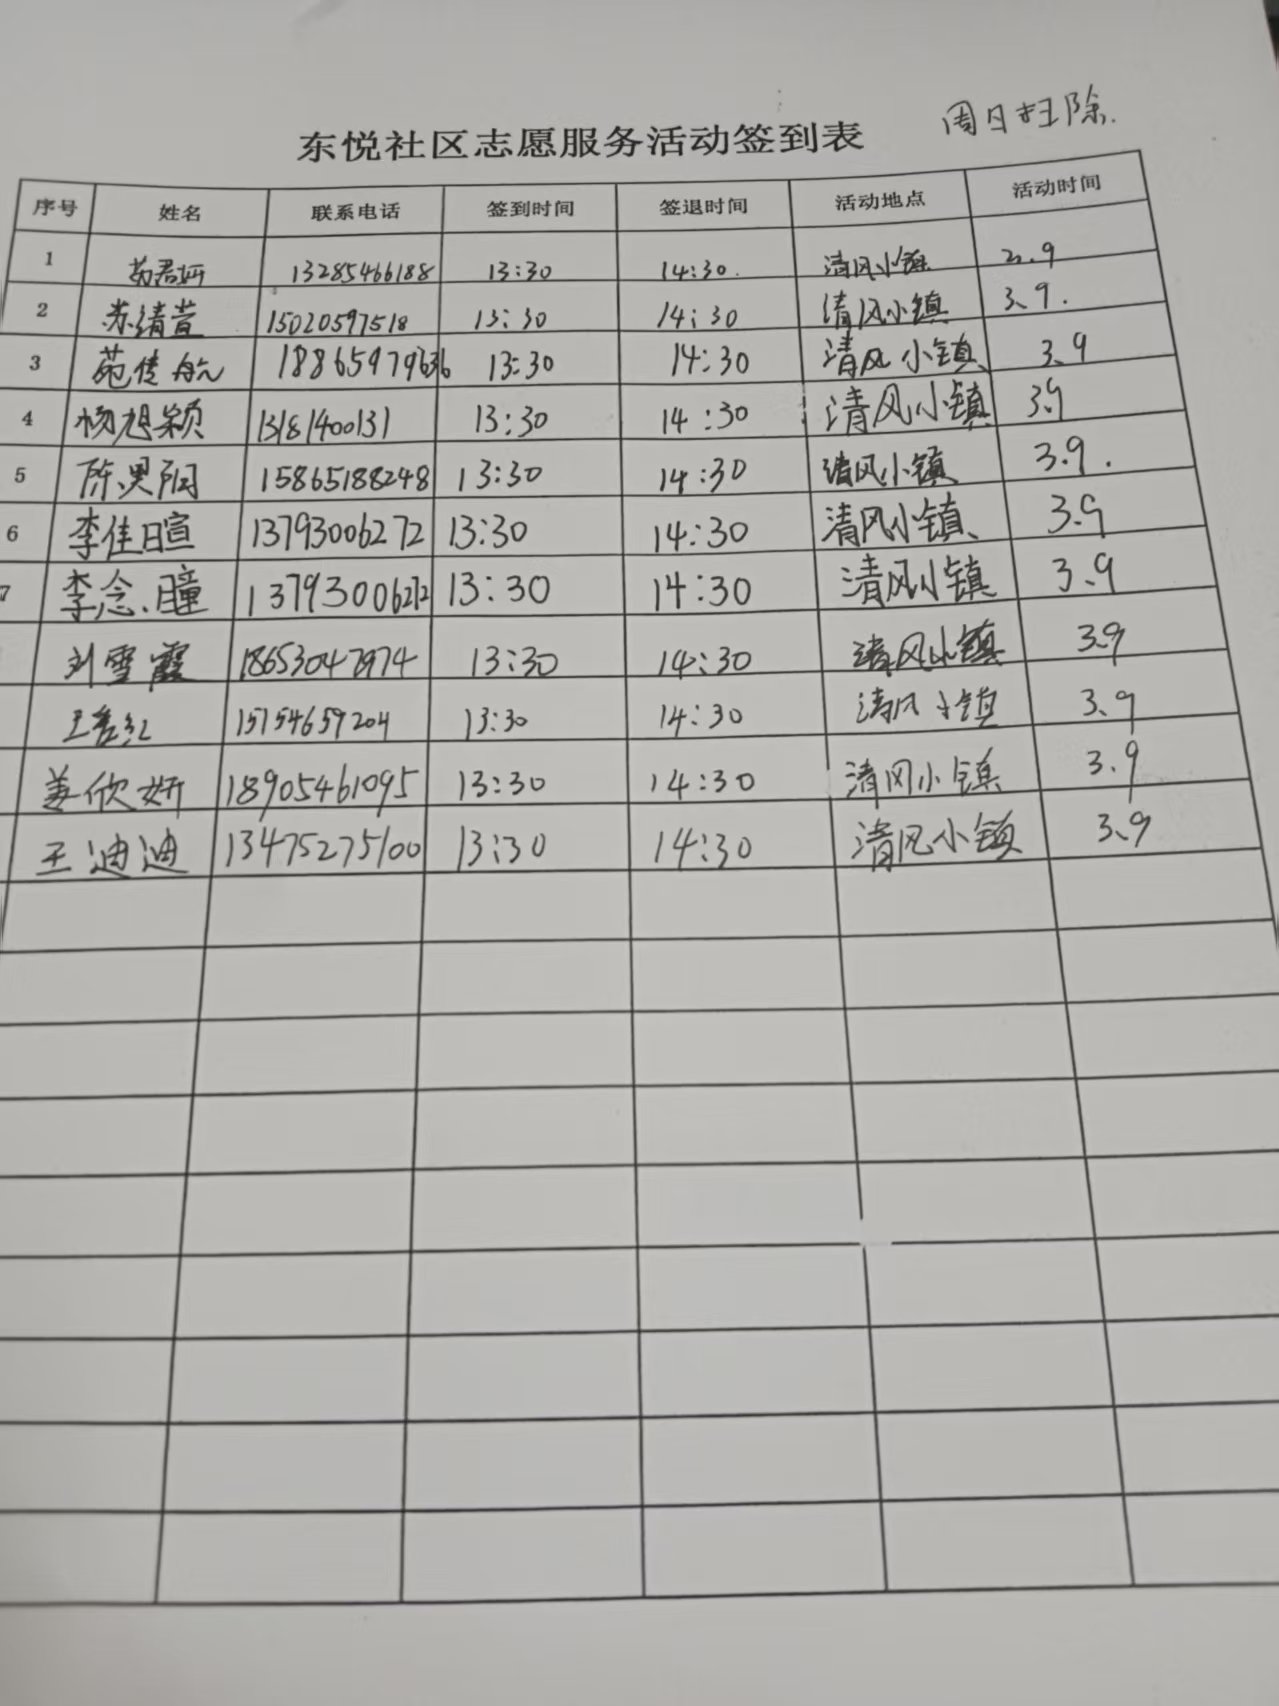 周日扫除.
东悦社区志愿服务活动签到表
序号 姓名 联系电话 签到时间 签退时间 活动地点 活动时间
1 13285466188 13:30 14:30. 清风小镇 3.9
2 苏靖萱 15020597518 13:30 14:30 清风小镇 3.9.
3 苑传航 13:30 14:30 清风小镇 3.9
4 杨旭颖 13181400131 13:30 14:30 清风小镇 3.9
5 15865188248 13:30 14:30 清风小镇 3.9.
6 李佳暄 13793006272 13:30 14:30 清风小镇 3.9
7 李念瞳 13793006272 13:30 14:30 清风小镇 3.9
刘雪霞 13:30 14:30 清风小镇 3.9
15754659204 13:30 14:30 清风小镇 3.9
姜欣妍 18905461095 13:30 14:30 清风小镇 3.9
王迪迪 13475275100 13:30 14:30 清风小镇 3.9